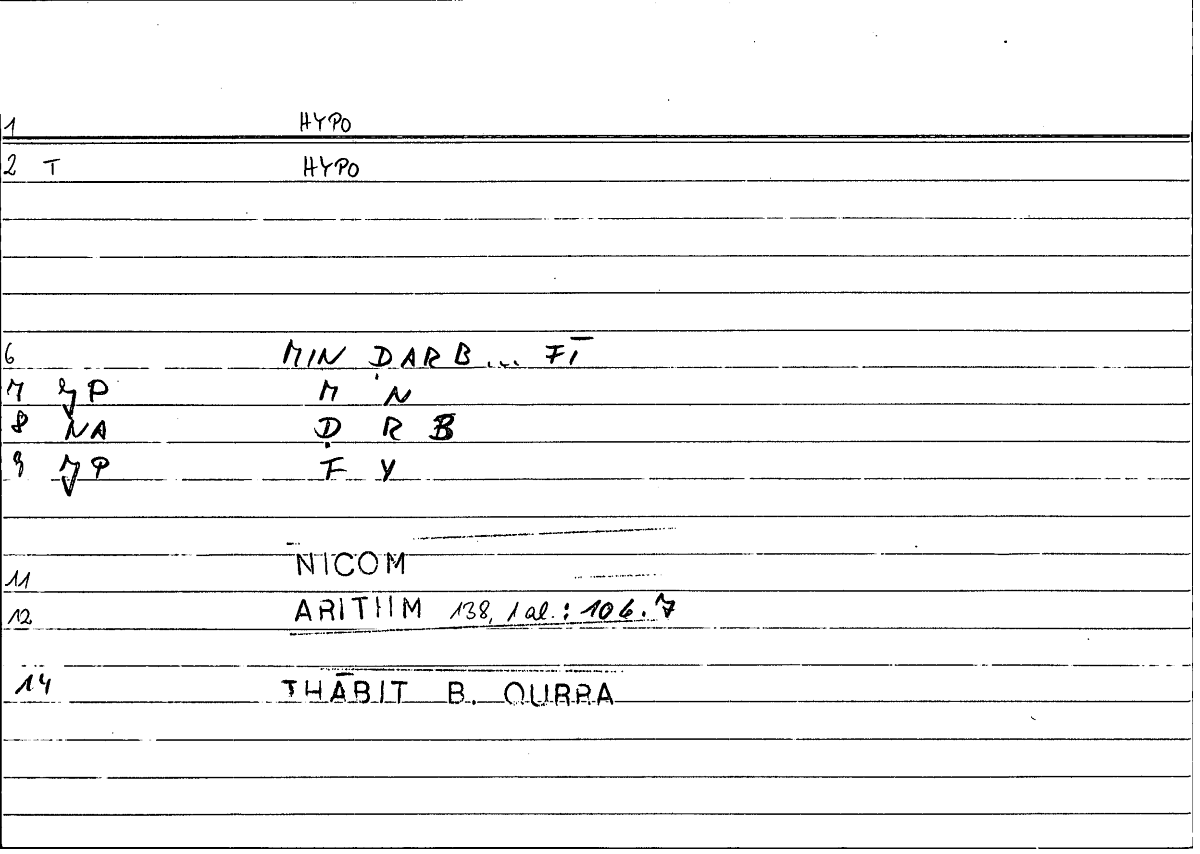 1 HYPO
2 T HYPO
6 MIN ḌARB... FĪ
7 P M N
8 NA Ḍ R B
9 P F Y
11 NICOM
12 ARITHM 138, 1 al.: 106.7
14 THĀBIT B. QURRA